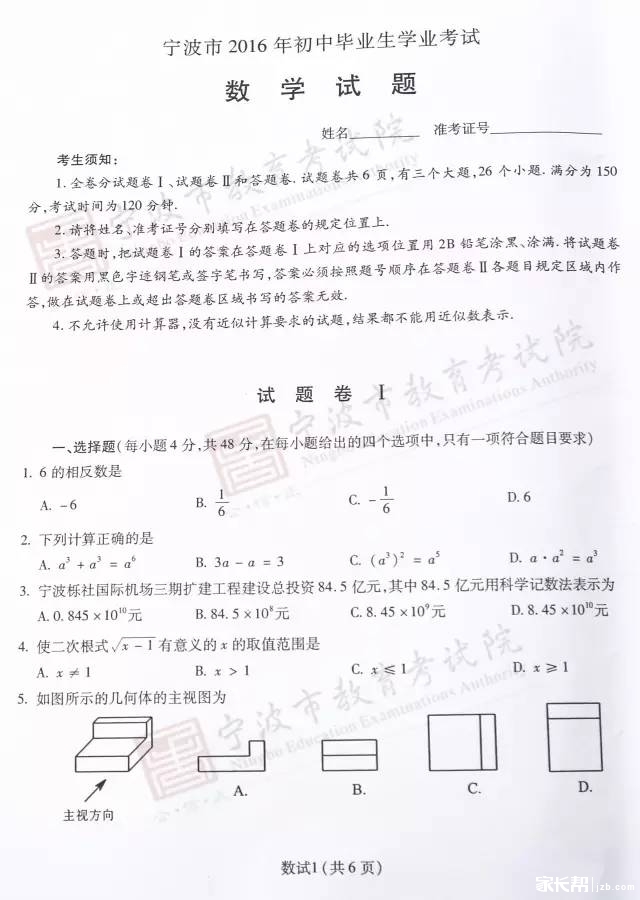 宁波市 2016 年初中毕业生学业考试
数 学 试 题
姓名________ 准考证号____________
考生须知：
1. 全卷分试题卷Ⅰ、试题卷Ⅱ和答题卷. 试题卷共 6 页, 有三个大题, 26 个小题. 满分为 150
分, 考试时间为 120 分钟.
2. 请将姓名、准考证号分别填写在答题卷的规定位置上.
3. 答题时, 把试题卷Ⅰ的答案在答题卷Ⅰ上对应的选项位置用 2B 铅笔涂黑、涂满. 将试题卷
Ⅱ的答案用黑色字迹钢笔或签字笔书写, 答案必须按照题号顺序在答题卷Ⅱ各题目规定区域内作
答, 做在试题卷上或超出答题卷区域书写的答案无效.
4. 不允许使用计算器, 没有近似计算要求的试题, 结果都不能用近似数表示.
试 题 卷 Ⅰ
一、选择题(每小题 4 分, 共 48 分, 在每小题给出的四个选项中, 只有一项符合题目要求)
1. 6 的相反数是
A. -6 B. 1/6 C. -1/6 D. 6
2. 下列计算正确的是
A. a³ + a³ = a⁶ B. 3a - a = 3 C. (a³)² = a⁵ D. a·a² = a³
3. 宁波栎社国际机场三期扩建工程建设总投资 84.5 亿元, 其中 84.5 亿元用科学记数法表示为
A. 0.845×10¹⁰元 B. 84.5×10⁸元 C. 8.45×10⁹元 D. 8.45×10¹⁰元
4. 使二次根式√(x-1)有意义的 x 的取值范围是
A. x ≠ 1 B. x > 1 C. x ≤ 1 D. x ≥ 1
5. 如图所示的几何体的主视图为
A. B. C. D.
主视方向
数试1 (共 6 页)
宁波市教育考试院
宁波市教育考试院
Ningbo Education Examinations Authority
宁波市教育考试院
Ningbo Education Examinations Authority
家长帮 jzb.com